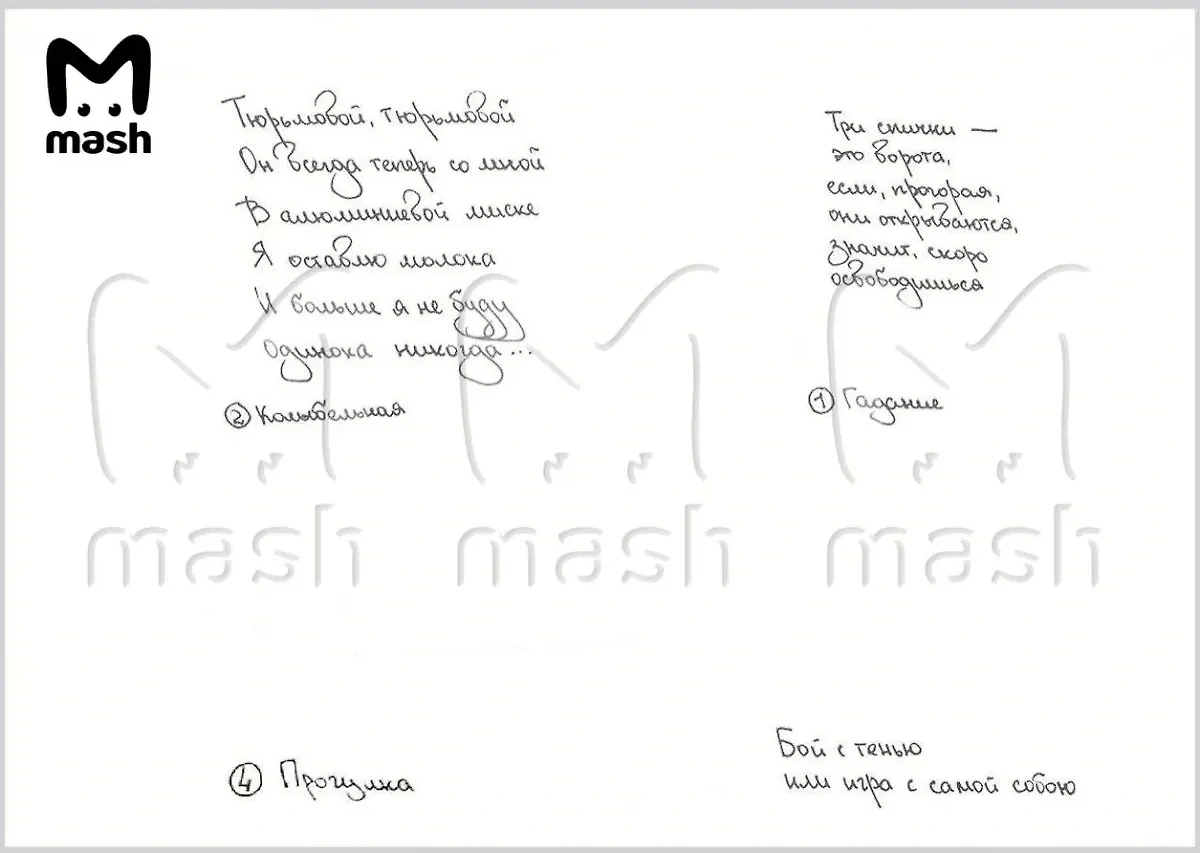 mash
Тюрьмовой, тюрьмовой
Он всегда теперь со мной
В алюминиевой миске
Я оставлю молока
И больше я не буду
Одинока никогда...
② Колыбельная
Три спички —
это ворота,
если, прогорая,
они открываются,
значит, скоро
освободишься
① Гадание
mash mash mash
④ Прогулка
Бой с тенью
или игра с самой собою